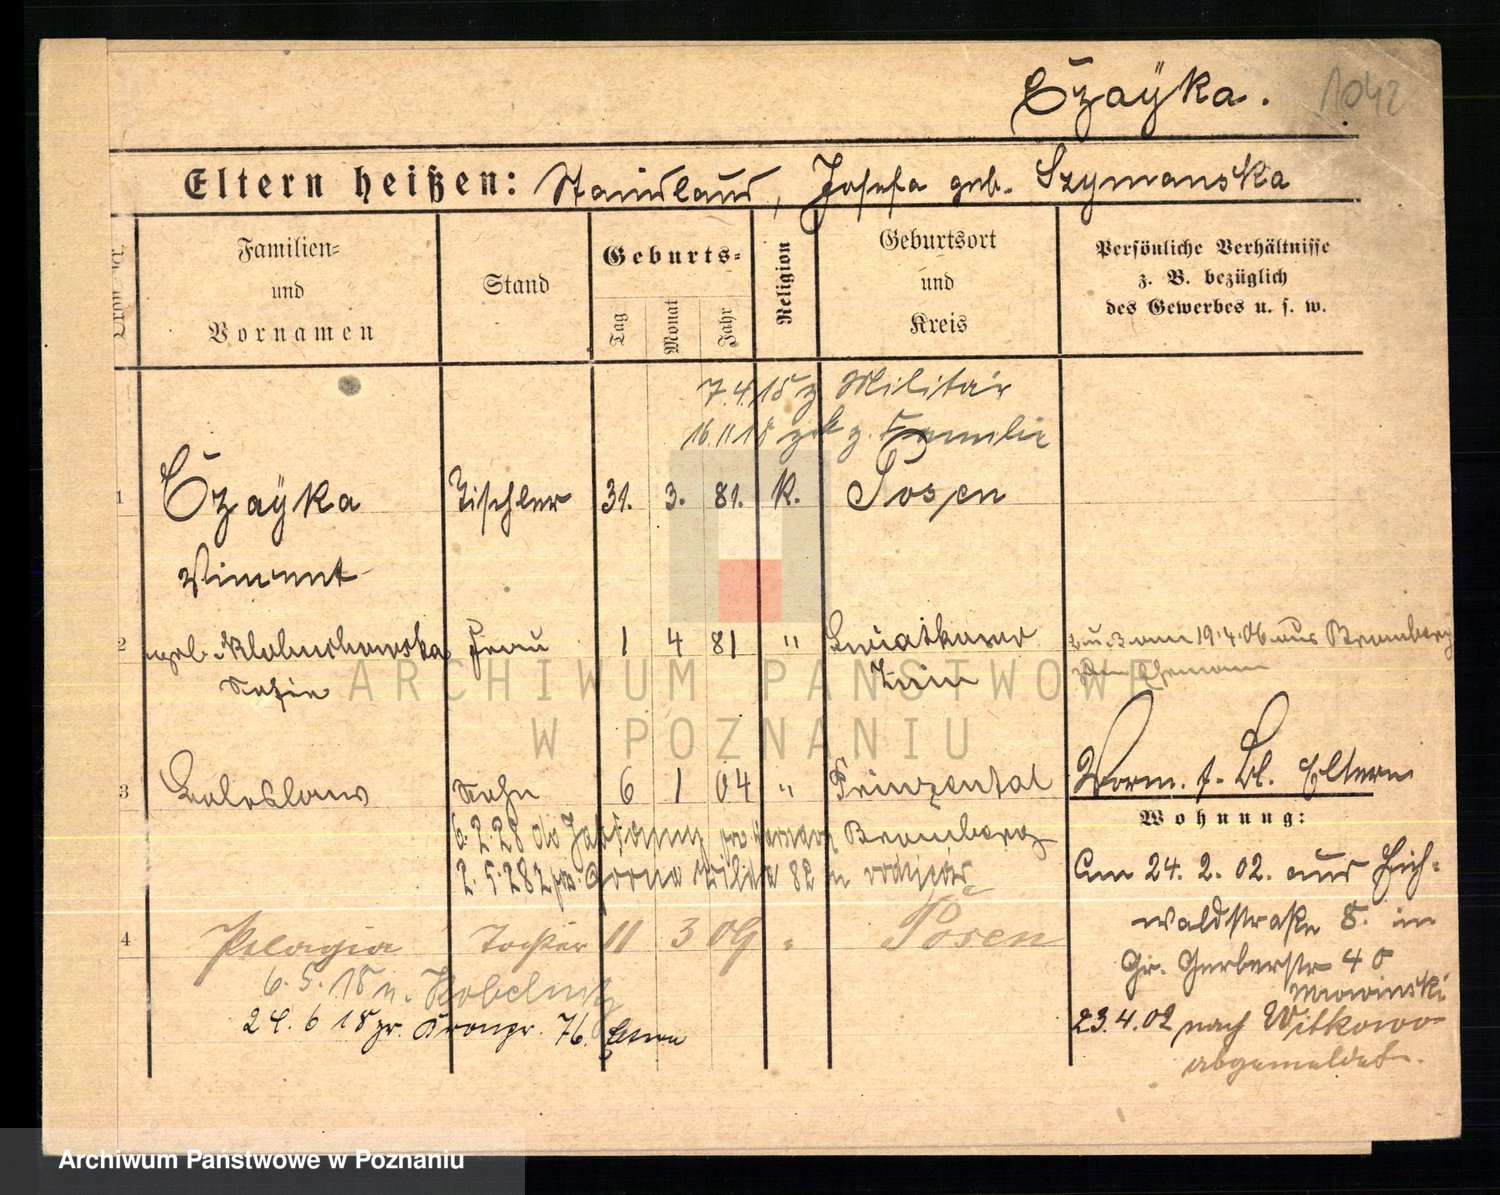 Czaÿka.
1042
Eltern heißen: Stanislaus, Josefa geb. Szymanska
Familien-
und
Vornamen
Stand
Geburts-
Tag
Monat
Jahr
Religion
Geburtsort
und
Kreis
Persönliche Verhältnisse
z. B. bezüglich
des Gewerbes u. s. w.
7.4.15 z Militär
16.11.18 zrk z. Familie
1 Czaÿka Tischler 31. 3. 81. K. Posen
Vincent
2 geb. Frau 1 4 81 "
Sofie Znin
2 u. 3 am 19.4.06 aus Bromberg
zum Ehemann
3 Boleslaus Sohn 6 1 04 " Prinzental
Vorm. s. Bl. Eltern
Wohnung:
6.2.28 do Bromberg
2.5.28 Górna Wilda 82
Am 24. 2. 02. aus Eich-
waldstraße 8. in
Gr. Gerberstr 40
Mrowinski
23.4.02 nach Witkowo
abgemeldet.
4 Pelagia Tochter 11 3 09 " Posen
6.5.18 n. Kobelnitz
24.6 18 zr. Kronpr. 76.
ARCHIWUM PAŃSTWOWE
W POZNANIU
Archiwum Państwowe w Poznaniu